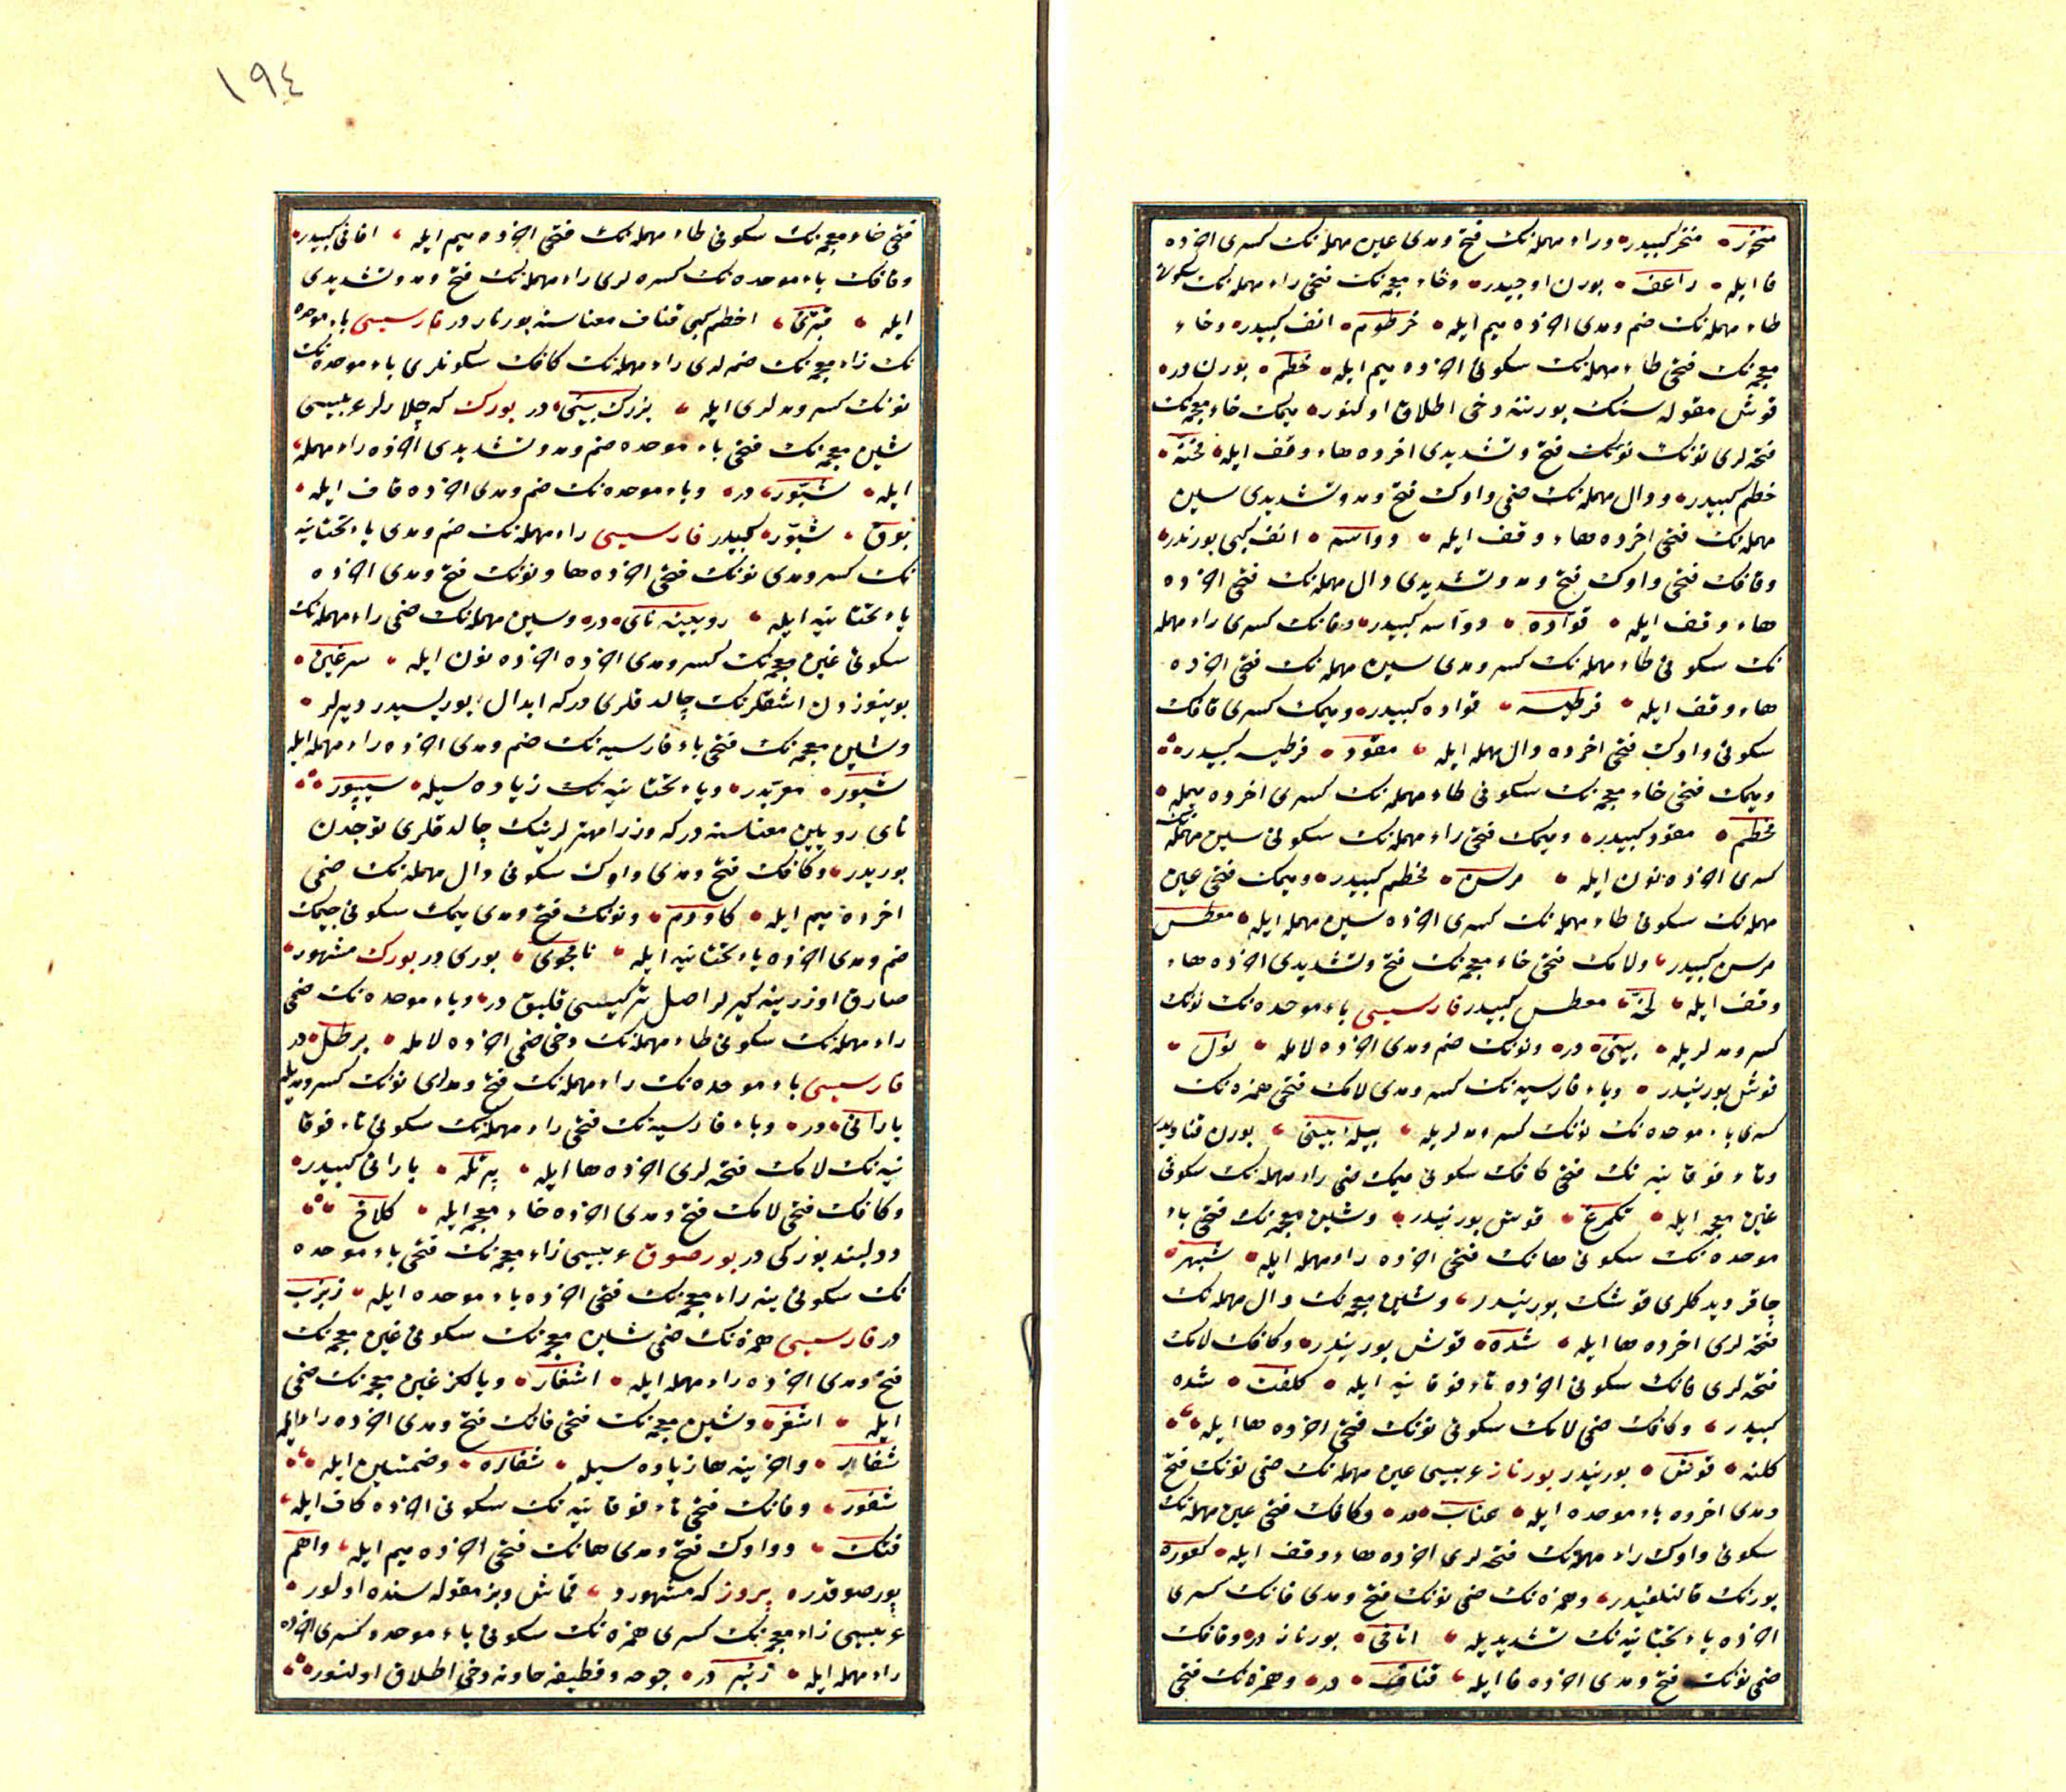 منخر كبيدر وراء مهمله‌نك فتح ومدى عين مهمله‌نك كسرى اخرده
فا ايله راعف بورن اوجيدر وخاء معجمه‌نك فتحى راء مهمله‌نك سكونى
طاء مهمله‌نك ضم ومدى اخرده ميم ايله خرطوم انف كبيدر وخاء
معجمه‌نك فتحى طاء مهمله‌نك سكونى اخرده ميم ايله خطم بورن در
قوش مقوله سنك بورننه دخى اطلاق اولنور ميمك خاء معجمه‌نك
فتحه لرى نونك فتح وتشديدى اخرده هاء وقف ايله مخنه
خطم كبيدر ودال مهمله‌نك ضمى واوك فتح ومد وتشديدى سين
مهمله‌نك فتحى اخرده هاء وقف ايله دواسه انف كبى بورندر
وقافك فتحى واوك فتح ومد وتشديدى دال مهمله‌نك فتحى اخرده
هاء وقف ايله قواده دواسه كبيدر وفانك كسرى راء مهمله
نك سكونى طاء مهمله‌نك كسر ومدى سين مهمله‌نك فتحى اخرده
هاء وقف ايله فرطيسه قواده كبيدر وميمك كسرى قافك
سكونى واوك فتحى اخرده دال مهمله ايله مقود فرطيسه كبيدر
وميمك فتحى خاء معجمه‌نك سكونى طاء مهمله‌نك كسرى اخرده ميمله
مخطم مقود كبيدر وميمك فتحى راء مهمله‌نك سكونى سين مهمله‌نك
كسرى اخرده نون ايله مرسن مخطم كبيدر وميمك فتحى عين
مهمله‌نك سكونى طاء مهمله‌نك كسرى اخرده سين مهمله ايله معطس
مرسن كبيدر ولامك فتحى خاء معجمه‌نك فتح وتشديدى اخرده هاء
وقف ايله لخه معطس كبيدر فارسيسى باء موحده‌نك نونك
كسر ومد لريله بينى در ونونك ضم ومدى اخرده لامله نول
قوش بورنيدر وباء فارسيه‌نك كسر ومدى لامك فتحى همزه‌نك
كسرى باء موحده‌نك نونك كسر ومد لريله پيله ابينى بورن قناديدر
وتاء فوقانيه‌نك فتحى كافك سكونى ميمك ضمى راء مهمله‌نك سكونى
غين معجمه ايله تكمرغ قوش بورنيدر وشين معجمه‌نك فتحى باء
موحده‌نك سكونى هانك فتحى اخرده راء مهمله ايله شبهر
چاقر ديدكلرى قوشك بورنيدر وشين معجمه‌نك دال مهمله‌نك
فتحه لرى اخرده ها ايله شده قوش بورنيدر وكافك لامك
فتحه لرى فانك سكونى اخرده تاء فوقانيه ايله كلفت شده
كبيدر وكافك ضمى لامك سكونى نونك فتحى اخرده ها ايله
كلنه قوش بورنيدر بورناز عربيسى عين مهمله‌نك ضمى نونك فتح
ومدى اخرده باء موحده ايله عناب در وكافك فتحى عين مهمله‌نك
سكونى واوك راء مهمله‌نك فتحه لرى اخرده هاء وقف ايله كعوره
بورنك قالنلغيدر وهمزه‌نك ضمى نونك فتح ومدى فانك كسرى
اخرده ياء تحتانيه‌نك تشديديله انافى بورناز در وقافك
ضمى نونك فتح ومدى اخرده فا ايله قناف در وهمزه‌نك فتحى
١٩٤
فتحى خاء معجمه‌نك سكونى طاء مهمله‌نك فتحى اخرده ميم ايله انافى كبيدر
وقافك باء موحده‌نك كسره لرى راء مهمله‌نك فتح ومد وتشديدى
ايله قبرى اخطم كبى قناف معناسنه بورنازدر فارسيسى باء موحده
نك زاء معجمه‌نك ضمه لرى راء مهمله‌نك كافك سكونلرى باء موحده‌نك
نونك كسر ومد لرى ايله بزرك بينى در بورك كه چالارلر عربيسى
شين معجمه‌نك فتحى باء موحده ضم ومد وتشديدى اخرده راء مهمله
ايله شبور در وباء موحده‌نك ضم ومدى اخرده قاف ايله
بوق شبور كبيدر فارسيسى راء مهمله‌نك ضم ومدى ياء تحتانيه
نك كسر ومدى نونك فتحى اخرده ها ونونك فتح ومدى اخرده
ياء تحتانيه ايله رويينه ناى در وسين مهمله‌نك ضمى راء مهمله‌نك
سكونى غين معجمه‌نك كسر ومدى اخرده نون ايله سرغين
بوينوزدن اشقلرنك چالدقلرى دركه ابدال بوريسيدر ديرلر
وشين معجمه‌نك فتحى باء فارسيه‌نك ضم ومدى اخرده راء مهمله ايله
شپور معربدر وياء تحتانيه‌نك زياده سيله شيپور
ناى رويين معناسنه دركه وزرا مهترلرينك چالدقلرى توجدن
بوريدر وكافك فتح ومدى واوك سكونى دال مهمله‌نك ضمى
اخرده ميم ايله كاودم ونونك فتح ومدى ميمك سكونى جيمك
ضم ومدى اخرده ياء تحتانيه ايله نامجوى بورى در بورك مشهور
صارق اوزرينه كيرلر اصل تركيسى قلبق در وباء موحده‌نك ضمى
راء مهمله‌نك سكونى طاء مهمله‌نك دخى ضمى اخرده لامله برطل در
فارسيسى باء موحده‌نك راء مهمله‌نك فتح ومدى نونك كسر ومديله
بارانى در وباء فارسيه‌نك فتحى راء مهمله‌نك سكونى تاء فوقا
نيه‌نك لامك فتحه لرى اخرده ها ايله پرتله بارانى كبيدر
وكافك فتحى لامك فتح ومدى اخرده خاء معجمه ايله كلاخ
دولبند بوركى در بورصوق عربيسى زاء معجمه‌نك فتحى باء موحده
نك سكونى ينه زاء معجمه‌نك فتحى اخرده باء موحده ايله زبزب
در فارسيسى همزه‌نك ضمى شين معجمه‌نك سكونى غين معجمه‌نك
فتح ومدى اخرده راء مهمله ايله اشغار ويالكز غين معجمه‌نك ضمى
ايله اشغر وشين معجمه‌نك فتحى غانك فتح ومدى اخرده راء ايله
شغار واخرينه ها زياده سيله شغاره وضمتين ايله
شغور وفانك فتحى تاء فوقانيه‌نك سكونى اخرده كاف ايله
فتك وواوك فتح ومدى هانك فتحى اخرده ميم ايله واهم
بورصوقدر بروز كه مشهوردر قماش وبز مقوله سنده اولور
عربيسى زاء معجمه‌نك كسرى همزه‌نك سكونى باء موحده كسرى اخرده
راء مهمله ايله زئبر در چوخه وقطيفه حاونه دخى اطلاق اولنور